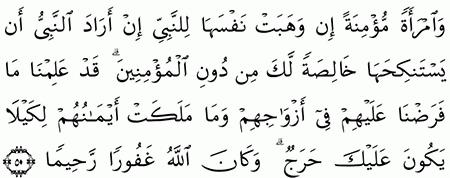 وَٱمْرَأَةً مُّؤْمِنَةً إِن وَهَبَتْ نَفْسَهَا لِلنَّبِىِّ إِنْ أَرَادَ ٱلنَّبِىُّ أَن
يَسْتَنكِحَهَا خَالِصَةً لَّكَ مِن دُونِ ٱلْمُؤْمِنِينَ ۗ قَدْ عَلِمْنَا مَا
فَرَضْنَا عَلَيْهِمْ فِىٓ أَزْوَٰجِهِمْ وَمَا مَلَكَتْ أَيْمَـٰنُهُمْ لِكَيْلَا
يَكُونَ عَلَيْكَ حَرَجٌ ۗ وَكَانَ ٱللَّهُ غَفُورًا رَّحِيمًا ٥٠